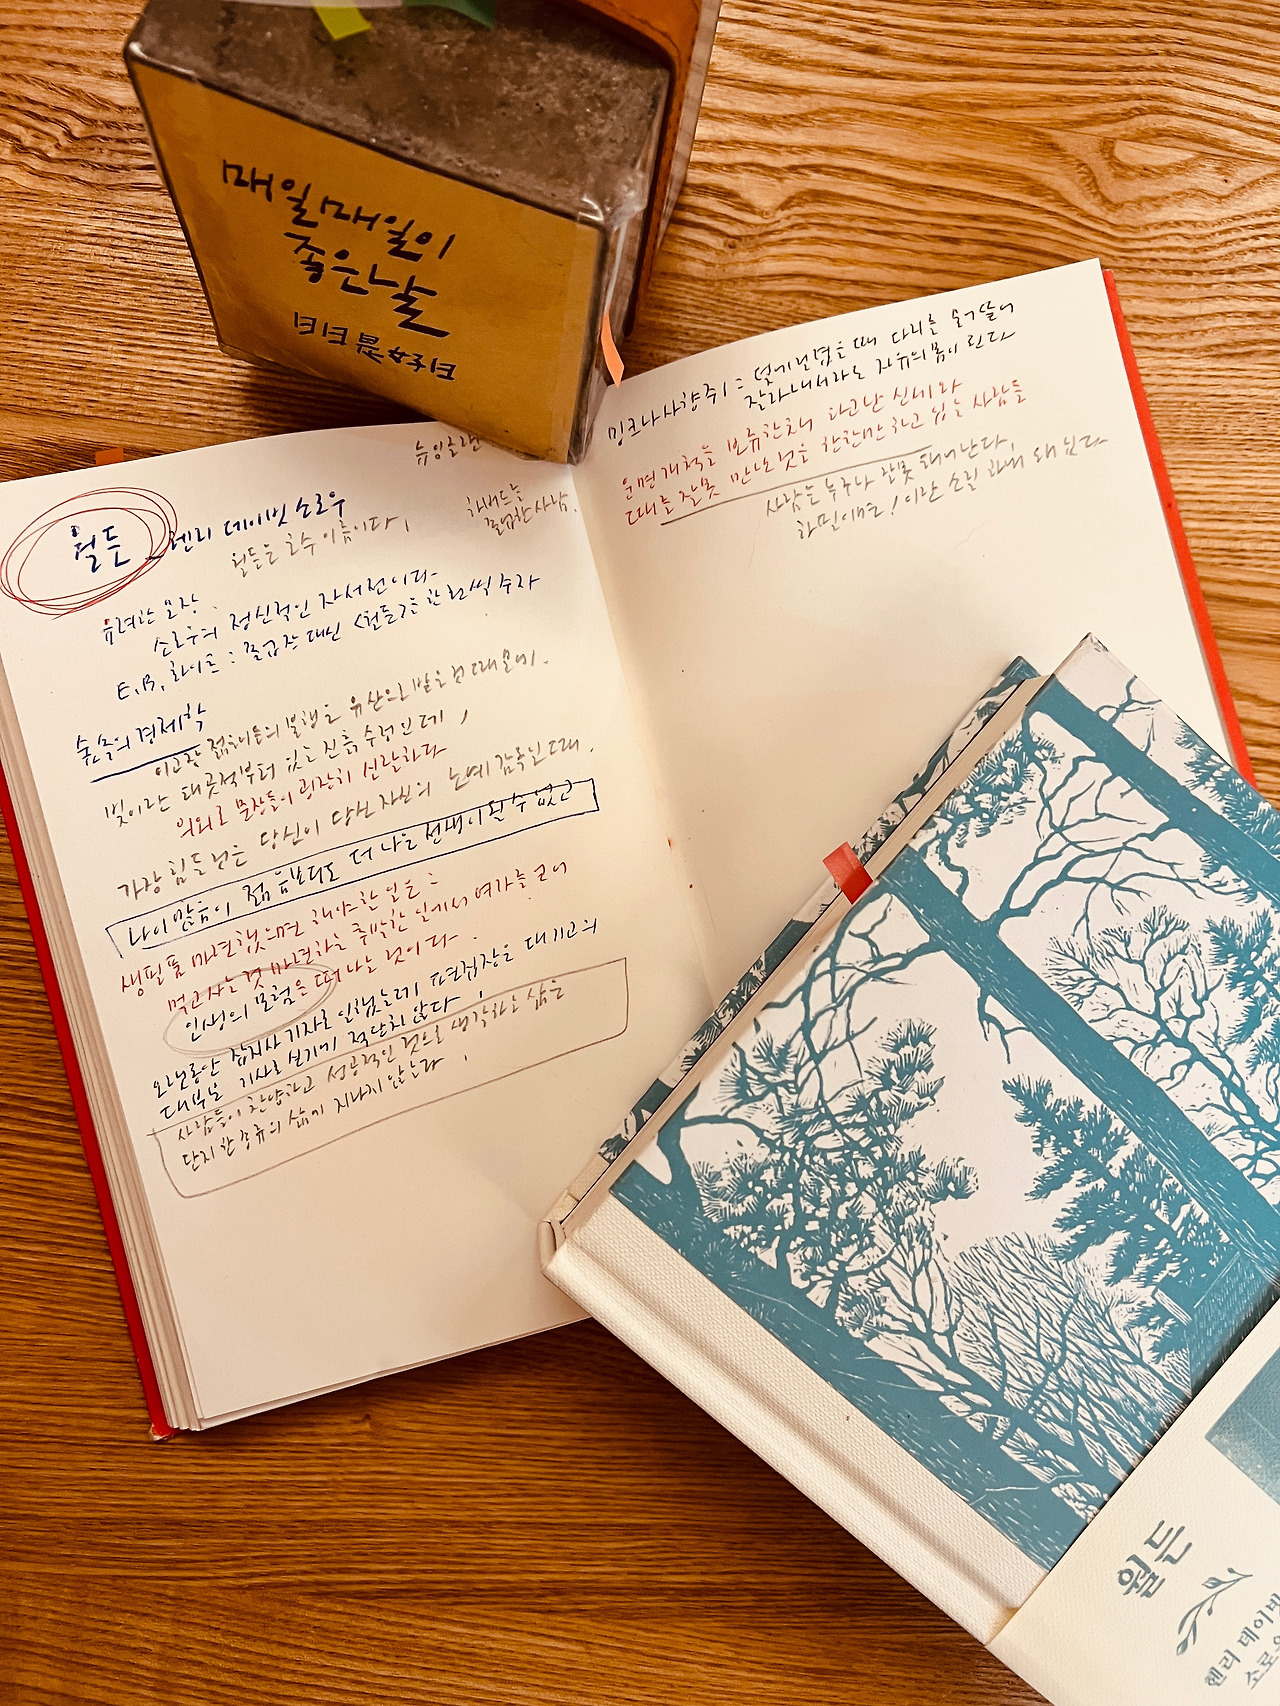 매일매일이
좋은날
日日是好日
뉴잉글랜
월든 _ 헨리 데이빗 소로우
월든은 호수 이름이다,
하버드를
졸업한 사람.
유려한 문장.
소로우의 정신적인 자서전이다-
E,B, 화이트 : 졸업장 대신 <월든>을 한 권씩 주자
숲속의 경제학
이고장 젊은이들의 불행은 유산으로 받은 것 때문에.
빚이란 태곳적부터 있는 진흙 수렁인데,
의외로 문장들이 굉장히 신랄하다
가장 힘든 것은 당신이 당신 자신의 노예 감독일 때.
나이 많음이 젊음보다도 더 나은 선생이 될 수 없고
생필품 마련했으면 해야 한 일은 :
먹고사는 것 마련하는 투박한 일에서 여가를 얻어
인생의 모험을 떠나는 것이다-
오랫동안 잡지사 기자로 일했는데 편집장은 내 기고의
대부분 기사로 싣기에 적당치 않다,
사람들이 찬양하고 성공적인 것으로 생각하는 삶은
단지 한 종류의 삶에 지나지 않는다,
밍크나 사향쥐 : 덫에 걸렸을때 다리를 물어뜯어
잘라내서라도 자유의 몸이 된다
운명개척을 보류한채 타고난 신세와
때를 잘못 만난것을 한탄만 하고 있는 사람들
사람은 누구나 잘못 태어난다,
하필이면! 이란 소릴 하게 돼 있다
월든
헨리 데이빗
소로우